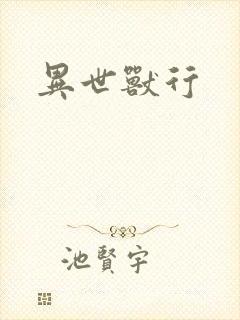 異世獸行
池賢宇